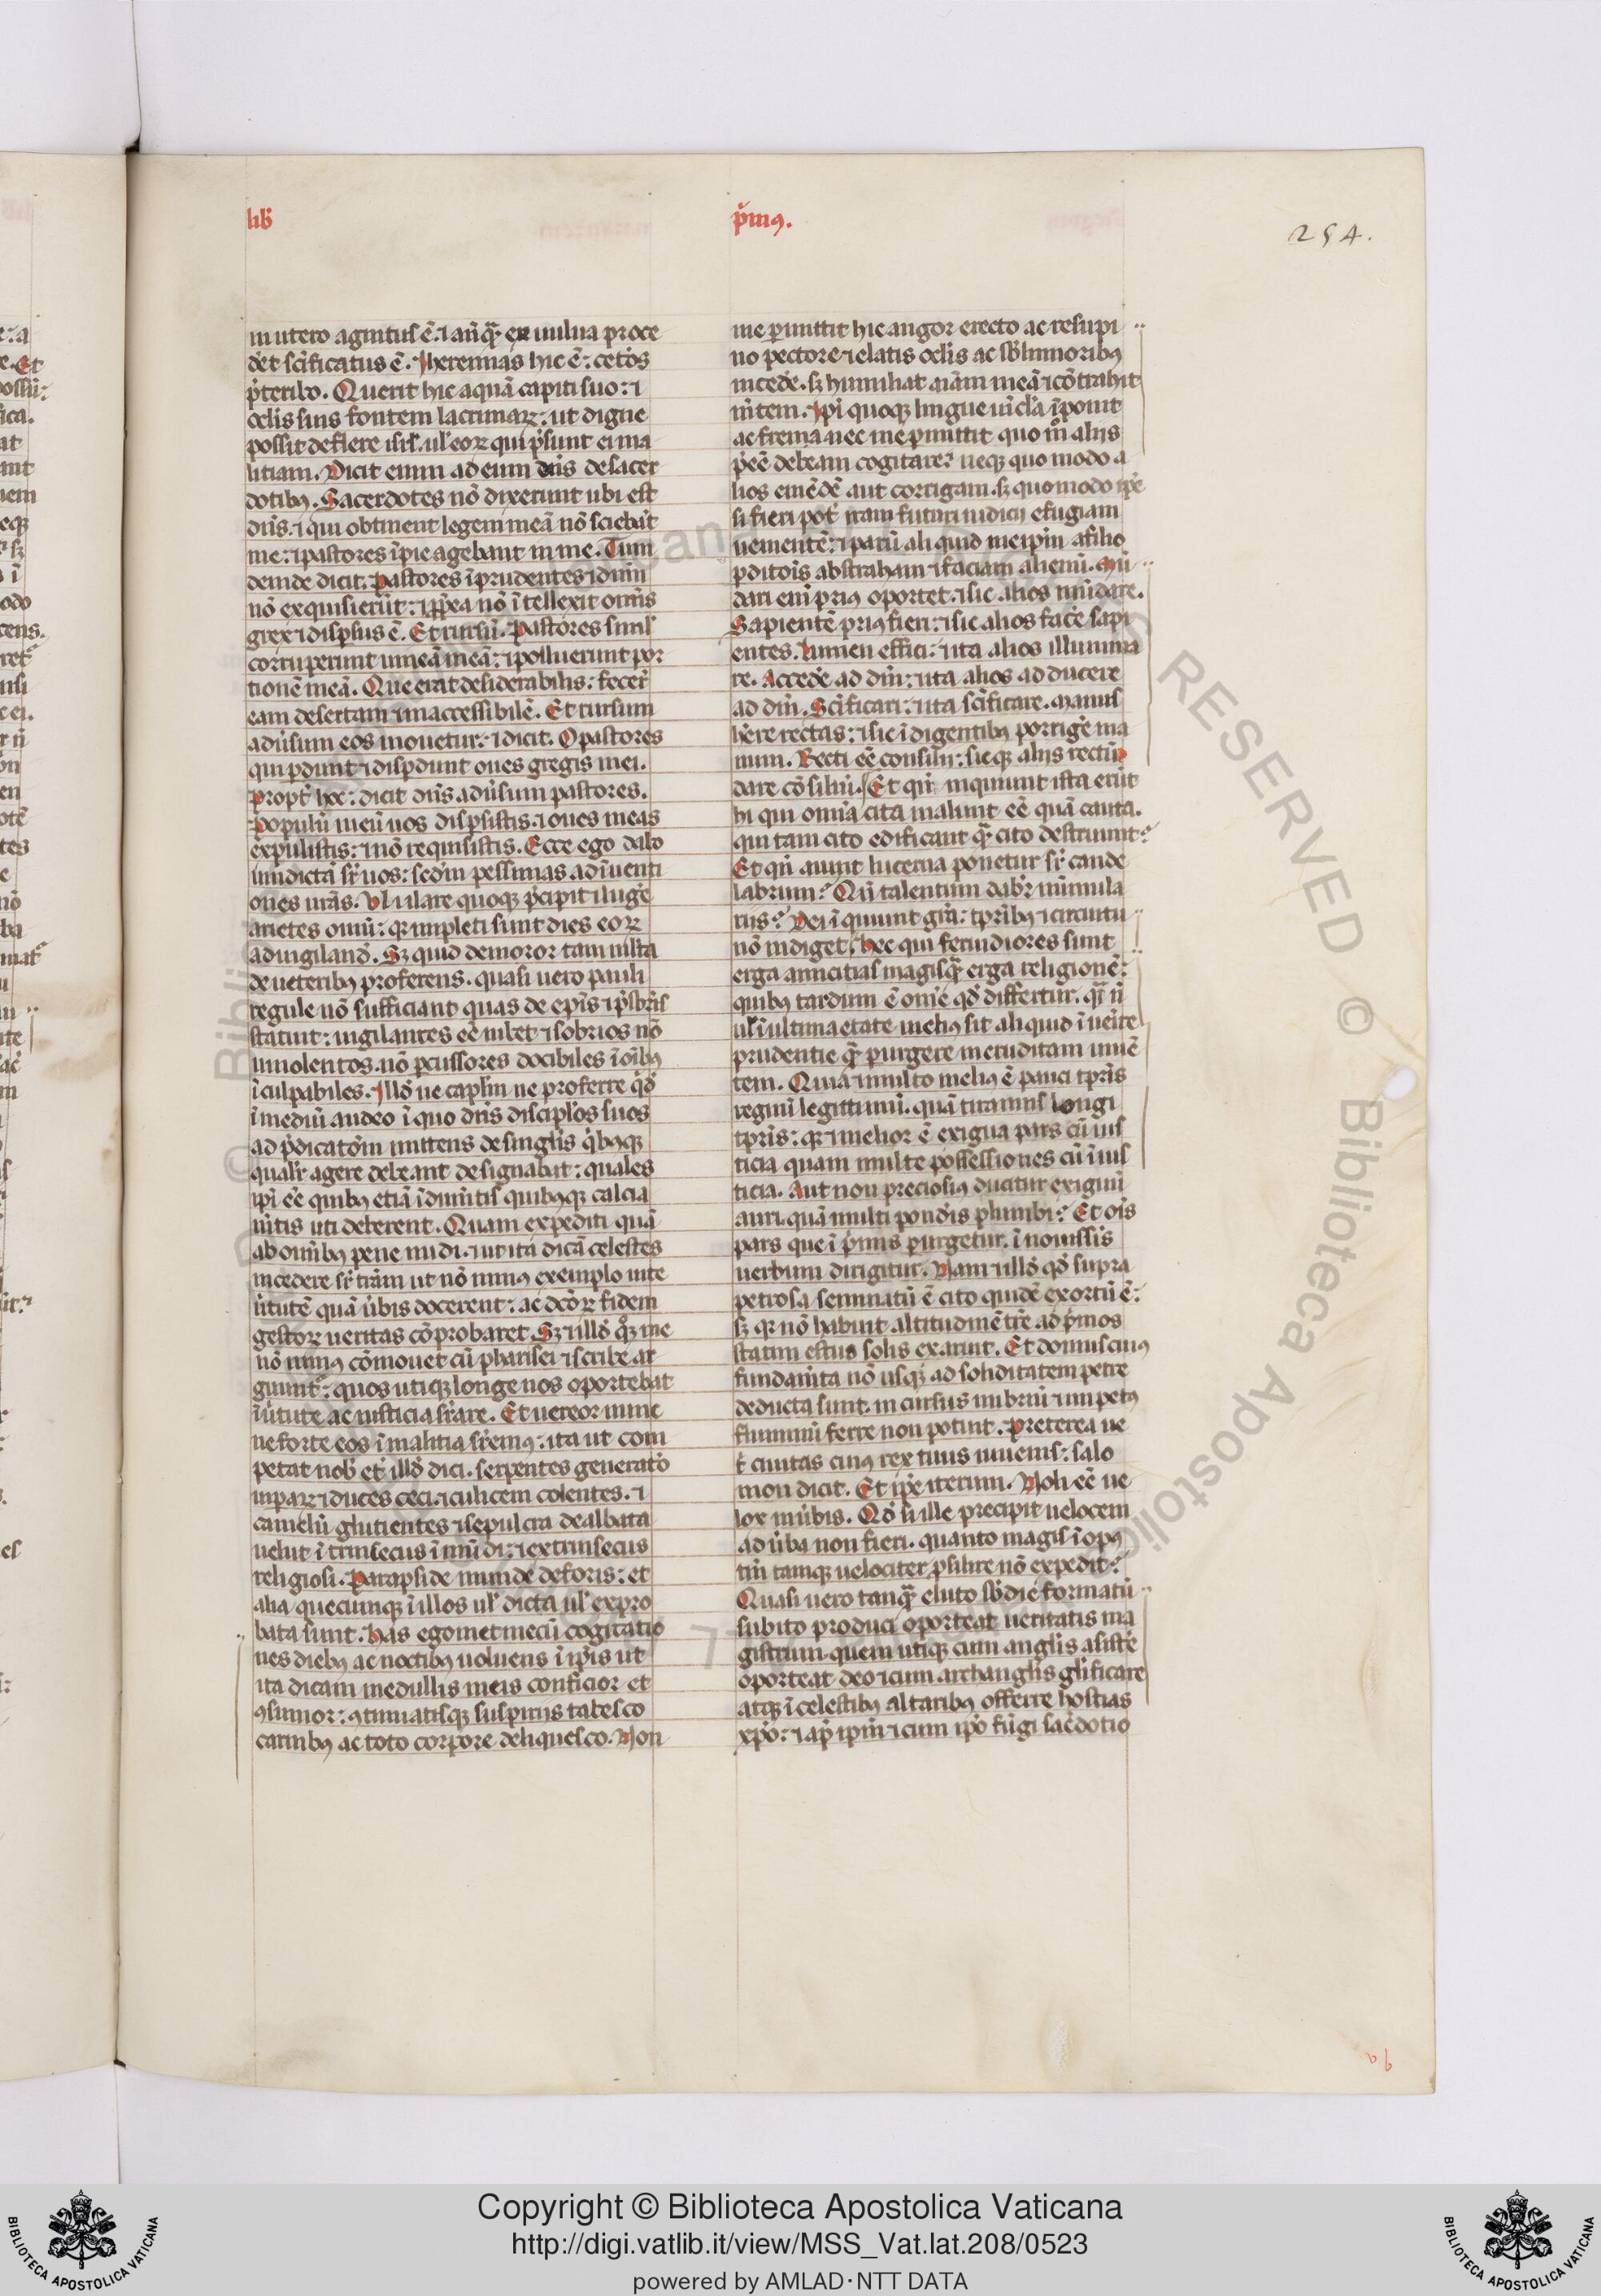 lib̄
p̄mꝰ.
254.
in utero agnitus ē. ⁊ anq̄ȝ ex uulua proce
det sc̄ificatus ē. Iheremias hic ē: cetōs
p̄teribo. Querit hic aquā capiti suo: ⁊
oclis suis fontem lacrimaꝝ: ut digne
possit deflere isrl̄. ul̓ eoꝝ qui p̄sunt ei ma
litiam. Dicit enim ad eum dn̄s de sacer
dotibꝰ. Sacerdotes nō dixerunt ubi est
dn̄s. ⁊ qui obtinent legem meā nō sciebāt
me: ⁊ pastores īpie agebant in me. Tum
deinde dicit. Pastores īprudentes ⁊ dnm̄
nō exquisierūt: ⁊ pp̄ea nō ītellexit omīs
grex ⁊ disp̱sus ē. Et rursū. Pastores simul̓
corruperunt uineā meā: ⁊ polluerunt por
tionē meā. Que erat desiderabilis: fecer̄
eam desertam ⁊ inaccessibilē. Et rursum
aduīsum eos mouetur: ⁊ dicit. O pastores
qui p̱dunt ⁊ disp̱dunt oues gregis mei.
Propt̄ hoc: dicit dn̄s aduīsum pastores.
Populū meū uos disp̱sistis. ⁊ oues meas
expulistis: ⁊ nō requisistis. Ecce ego dabo
uindictā sr̄ uos: sedm̄ pessimas adīuenti
ones ur̄as. Ululare quoqȝ p̄cipit ⁊ luge
arietes ouiū: qr̄ impleti sunt dies eoꝝ
ad iugiland̄. Sȝ quid demoror tam iusta
de ueteribꝰ proferens. quasi uero pauli
regule nō sufficiant quas de epīs ⁊ p̄sbr̄is
statuit: uigilantes eē iubet ⁊ sobrios nō
uinolentos. nō p̱cussores docibiles ī oībꝰ
ī culpabiles. Illō ue capl̄m ne proferre q̄dē
ī mediū audeo ī quo dn̄s discipl̄os suos
ad p̄dicatōm mittens de singl̄is q̄bꝰqȝ
qualr̄ agere debeant designabit: quales
ip̄i eē quibꝰ etiā īdumītis quibꝰqȝ calcia
mītis uti deberent. Quam expediti quā
ab omībꝰ pene nudi. ⁊ ut ita dicā celestes
incedere sr̄ tr̄am ut nō minꝰ exemplo uite
ūtutē quā ūbis docerent: ac dcōꝝ fidem
gestoꝝ ueritas cōprobaret. Sȝ ⁊ illō qꝫ me
nō minꝰ cōmouet cū pharisei ⁊ scribe ar
guunt̄: quos utiqȝ longe nos oportebat
ī ūtute ac iusticia sr̄are. Et uereor nunc
ne forte eos ī malitia sr̄emꝰ: ita ut com
petat nob̄ et illō dici. serpentes generatō
uiperaꝝ ⁊ duces ceci. ⁊ culicem colentes. ⁊
camelū glutientes ⁊ sepulcra dealbata
uelut ītrinsecus īmūdi: ⁊ extrinsecus
religiosi. Parapside munde deforis: et
alia quecumqȝ ī illos ul̓ dicta ul̓ expro
bata sunt. Has egomet mecū cogitatio
nes diebꝰ ac noctibꝰ uoluens ī ip̄is ut
ita dicam medullis meis conficior et
ꝯsumor: ꝯtinuatisqȝ suspiriis tabesco
carnibꝰ ac toto corpore deliquesco. Non
me p̱mittit hic angor erecto ac resupi
no pectore ⁊ elatis oclis ac sb̄limioribꝰ
incedē. sȝ humiliat aīam meā ⁊ cōtrahit
mītem. Ip̄i quoqȝ lingue uīcla īponit
ac frena nec me p̱mittit quo m̊ aliis
p̄eē debeam cogitare: neqȝ quo modo a
lios emēdē aut corrigam. sȝ quomodo ip̄e
si fieri pot̄ iram futuri iudicii efugiam
uementē: ⁊ parū aliquid meip̄m a filio
p̱ditōis abstraham ⁊ faciam alienū. Mū
dari eni prius oportet. ⁊ sic alios mūdare.
Sapientē priꝰ fieri: ⁊ sic alios facē sapi
entes. Lumen effici: ⁊ ita alios illumina
re. Accedē ad dm̄: ⁊ ita alios adducere
ad dm̄. Sc̄ificari: ⁊ ita sc̄ificare. Manus
hēre rectas: ⁊ sic īdigentibꝰ porrigē ma
num. Recti eē consilii: sicqȝ aliis rectū
dare cōsiliū. Et qn̄ inquiunt ista erūt
hi qui omīa cita malunt eē quā cauta.
qui tam cito edificant q̄ȝ cito destruunt?
Et qn̄ aiunt lucerna ponetur sr̄ cande
labrum? Qn̄ talentum dabr̄ nūmula
riis? Dei īquiunt gr̄a: tpr̄ibꝰ ⁊ circuitu
nō indiget. hec qui fecundiores sunt
erga amicitias magisq̄ȝ erga religionē:
quibꝰ tardum ē om̄e qd̓ differtur. qr̄ n̄
ul̓ ī ultima etate meliꝰ sit aliquid īueīre
prudentie q̄ȝ p̱urgere ineruditam iuuē
tem. Quia ⁊ multo meliꝰ ē pauci tpr̄is
regnū legittimū. quā tirannis longi
tpr̄is: qr̄ ⁊ melior ē exigua pars cū ius
ticia quam multe possessiones cū īius
ticia. Aut non preciosiꝰ ducitur exiguū
auri. quā multi pond̓is plumbi? Et ōis
pars que ī p̄mis p̱urgetur. ī nouissīs
uerbum dirigitur. Nam ⁊ illō qd̓ supra
petrosa seminatū ē cito quidē exortū ē:
sȝ qr̄ nō habuit altitudinē tr̄e ad p̄mos
statim estus solis exaruit. Et domus cuiꝰ
fundamīta nō usqȝ ad soliditatem petre
deducta sunt. incursus imbriū ⁊ impetꝰ
fluminū ferre non potūt. Preterea ue
t̄ ciuitas cuiꝰ rex tuus iuuenis: salo
mon dicit. Et ip̄e iterum. Noli eē ue
lox in ūbis. Qd̓ si ille precipit uelocem
ad ūba non fieri. quanto magis ī opꝰ
tm̄ tamqȝ uelociter p̱silire nō expedit?
Quasi uero tanq̄ȝ e luto sb̄ die formatū
subito produci oporteat ueritatis ma
gistrum. quem utiqȝ cum angl̄is asistē
oporteat deo ⁊ cum archangl̄is gl̄ificare
atqȝ ī celestibꝰ altaribꝰ offerre hostias
xp̄o: ⁊ ap̄ ip̄m ⁊ cum ip̄o fūgi sac̄dotio
Copyright © Biblioteca Apostolica Vaticana
http://digi.vatlib.it/view/MSS_Vat.lat.208/0523
powered by AMLAD·NTT DATA
BIBLIOTECA APOSTOLICA VATICANA
BIBLIOTECA APOSTOLICA VATICANA